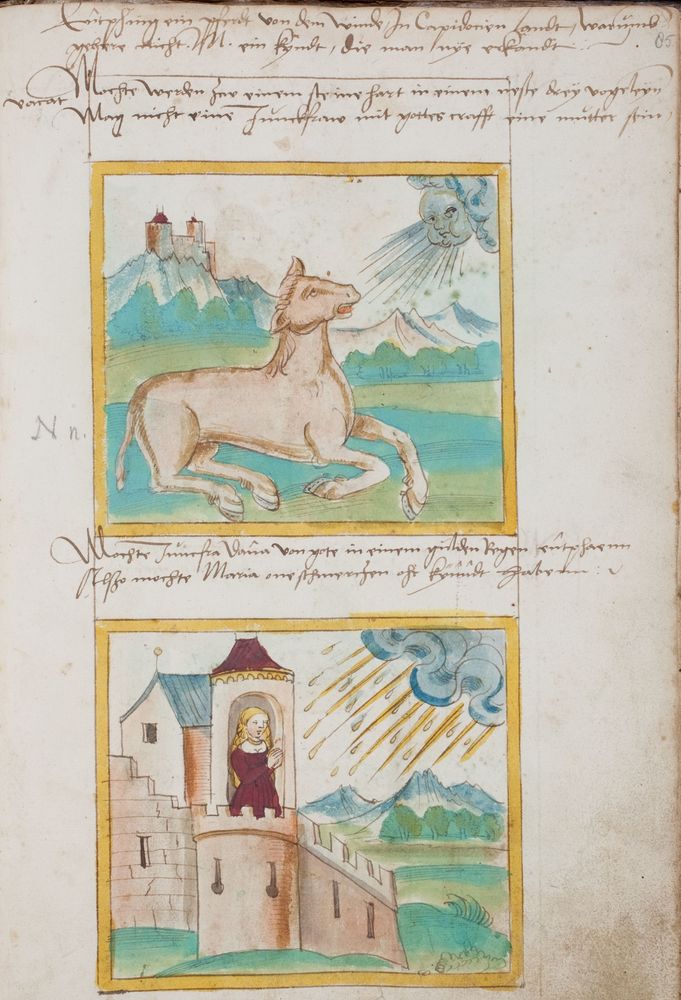 Entphing ein pferdt von dem winde In Capidocien Landt, warumb
gebere nicht M. ein kyndt, die man nye erkandt
65
Mochte werden zw einem steine hart in einem neste drey vogeleyn
vacat
May nicht eine Junckfraw mit gottes crafft eine mutter sein,
N n.
Mochte Junckfra Dana von gote in einem gulden Regen entphaenn
Alszo mochte Maria one schmerczen ehr kyndt habenn